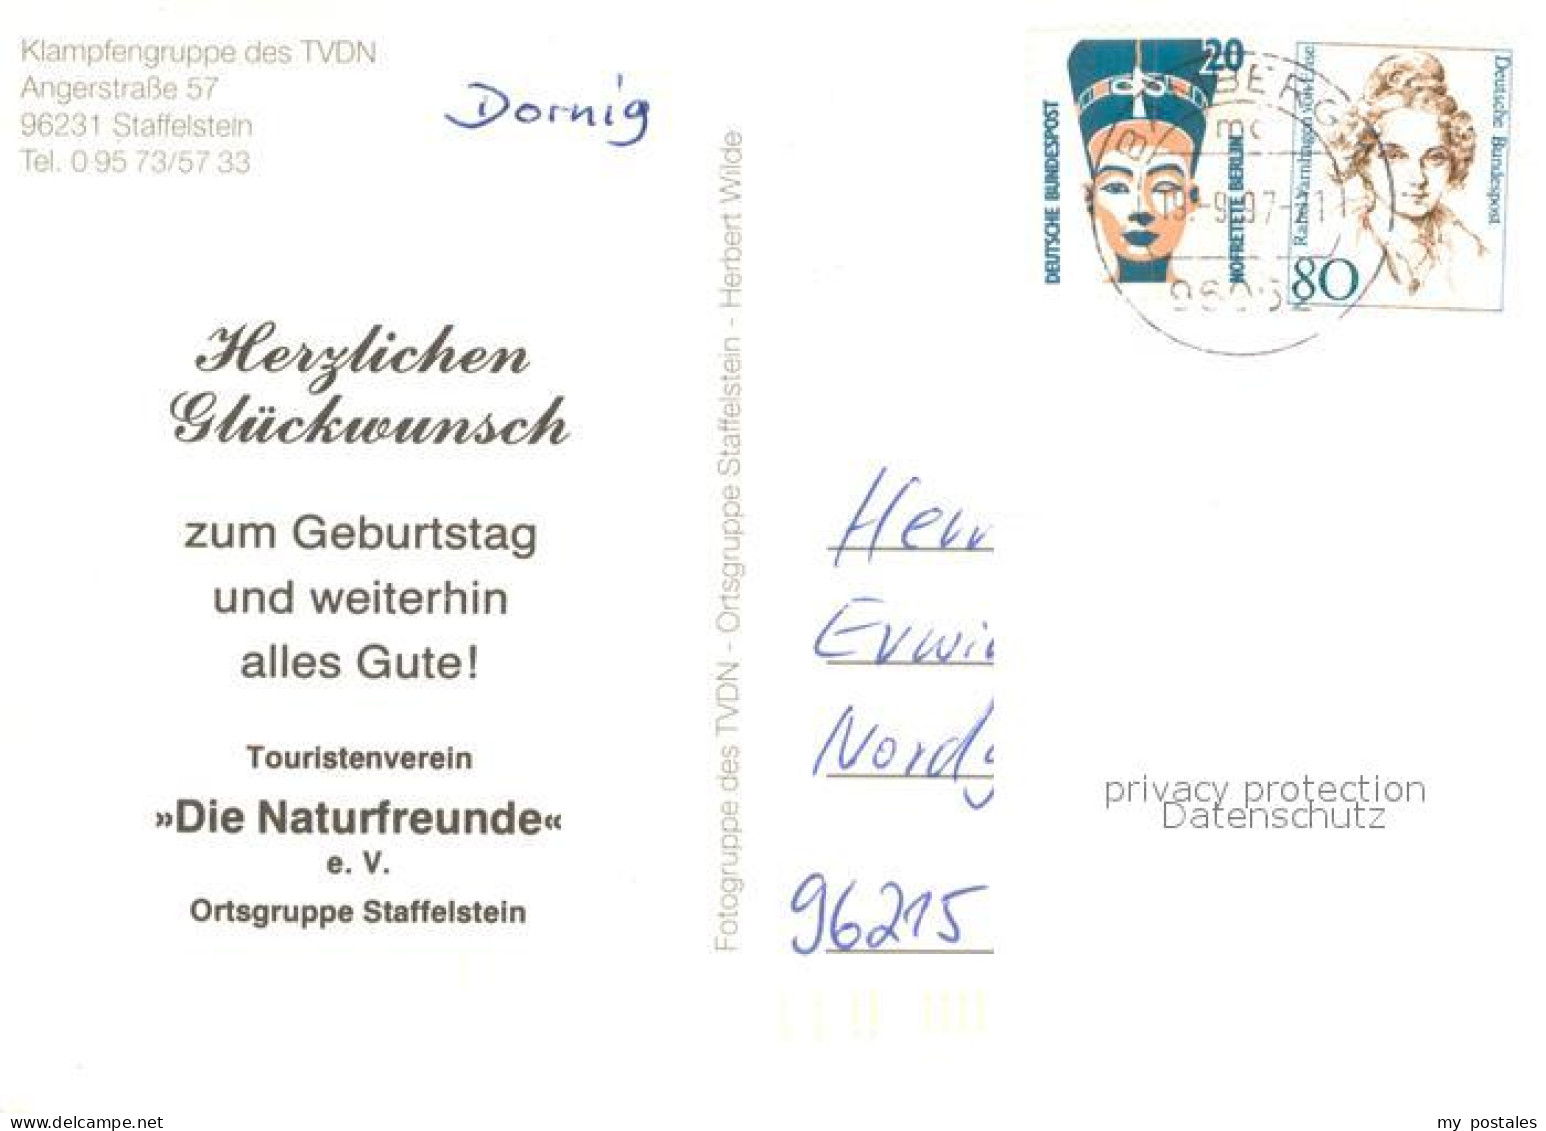 Klampfengruppe des TVDN
Angerstraße 57
96231 Staffelstein
Tel. 0 95 73/57 33
Dornig
Herzlichen
Glückwunsch
zum Geburtstag
und weiterhin
alles Gute!
Touristenverein
»Die Naturfreunde«
e. V.
Ortsgruppe Staffelstein
Fotogruppe des TVDN - Ortsgruppe Staffelstein - Herbert Wilde
DEUTSCHE BUNDESPOST
20
NOFRETETE BERLIN
Rahel Varnhagen von Ense
80
Deutsche Bundespost
BERG
Herr
Erwi
Nord
96215
privacy protection
Datenschutz
my postales